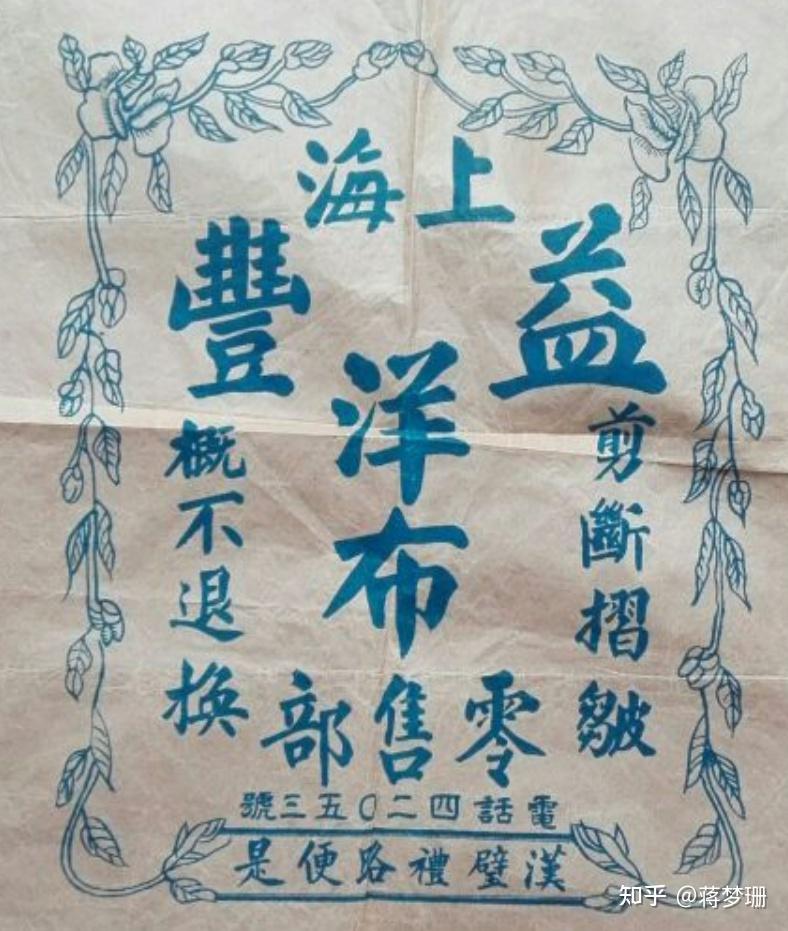 上海
益豐
洋布
剪斷摺皺
概不退換
零售部
電話四二〇五三號
漢璧禮路便是
知乎 @蒋梦珊